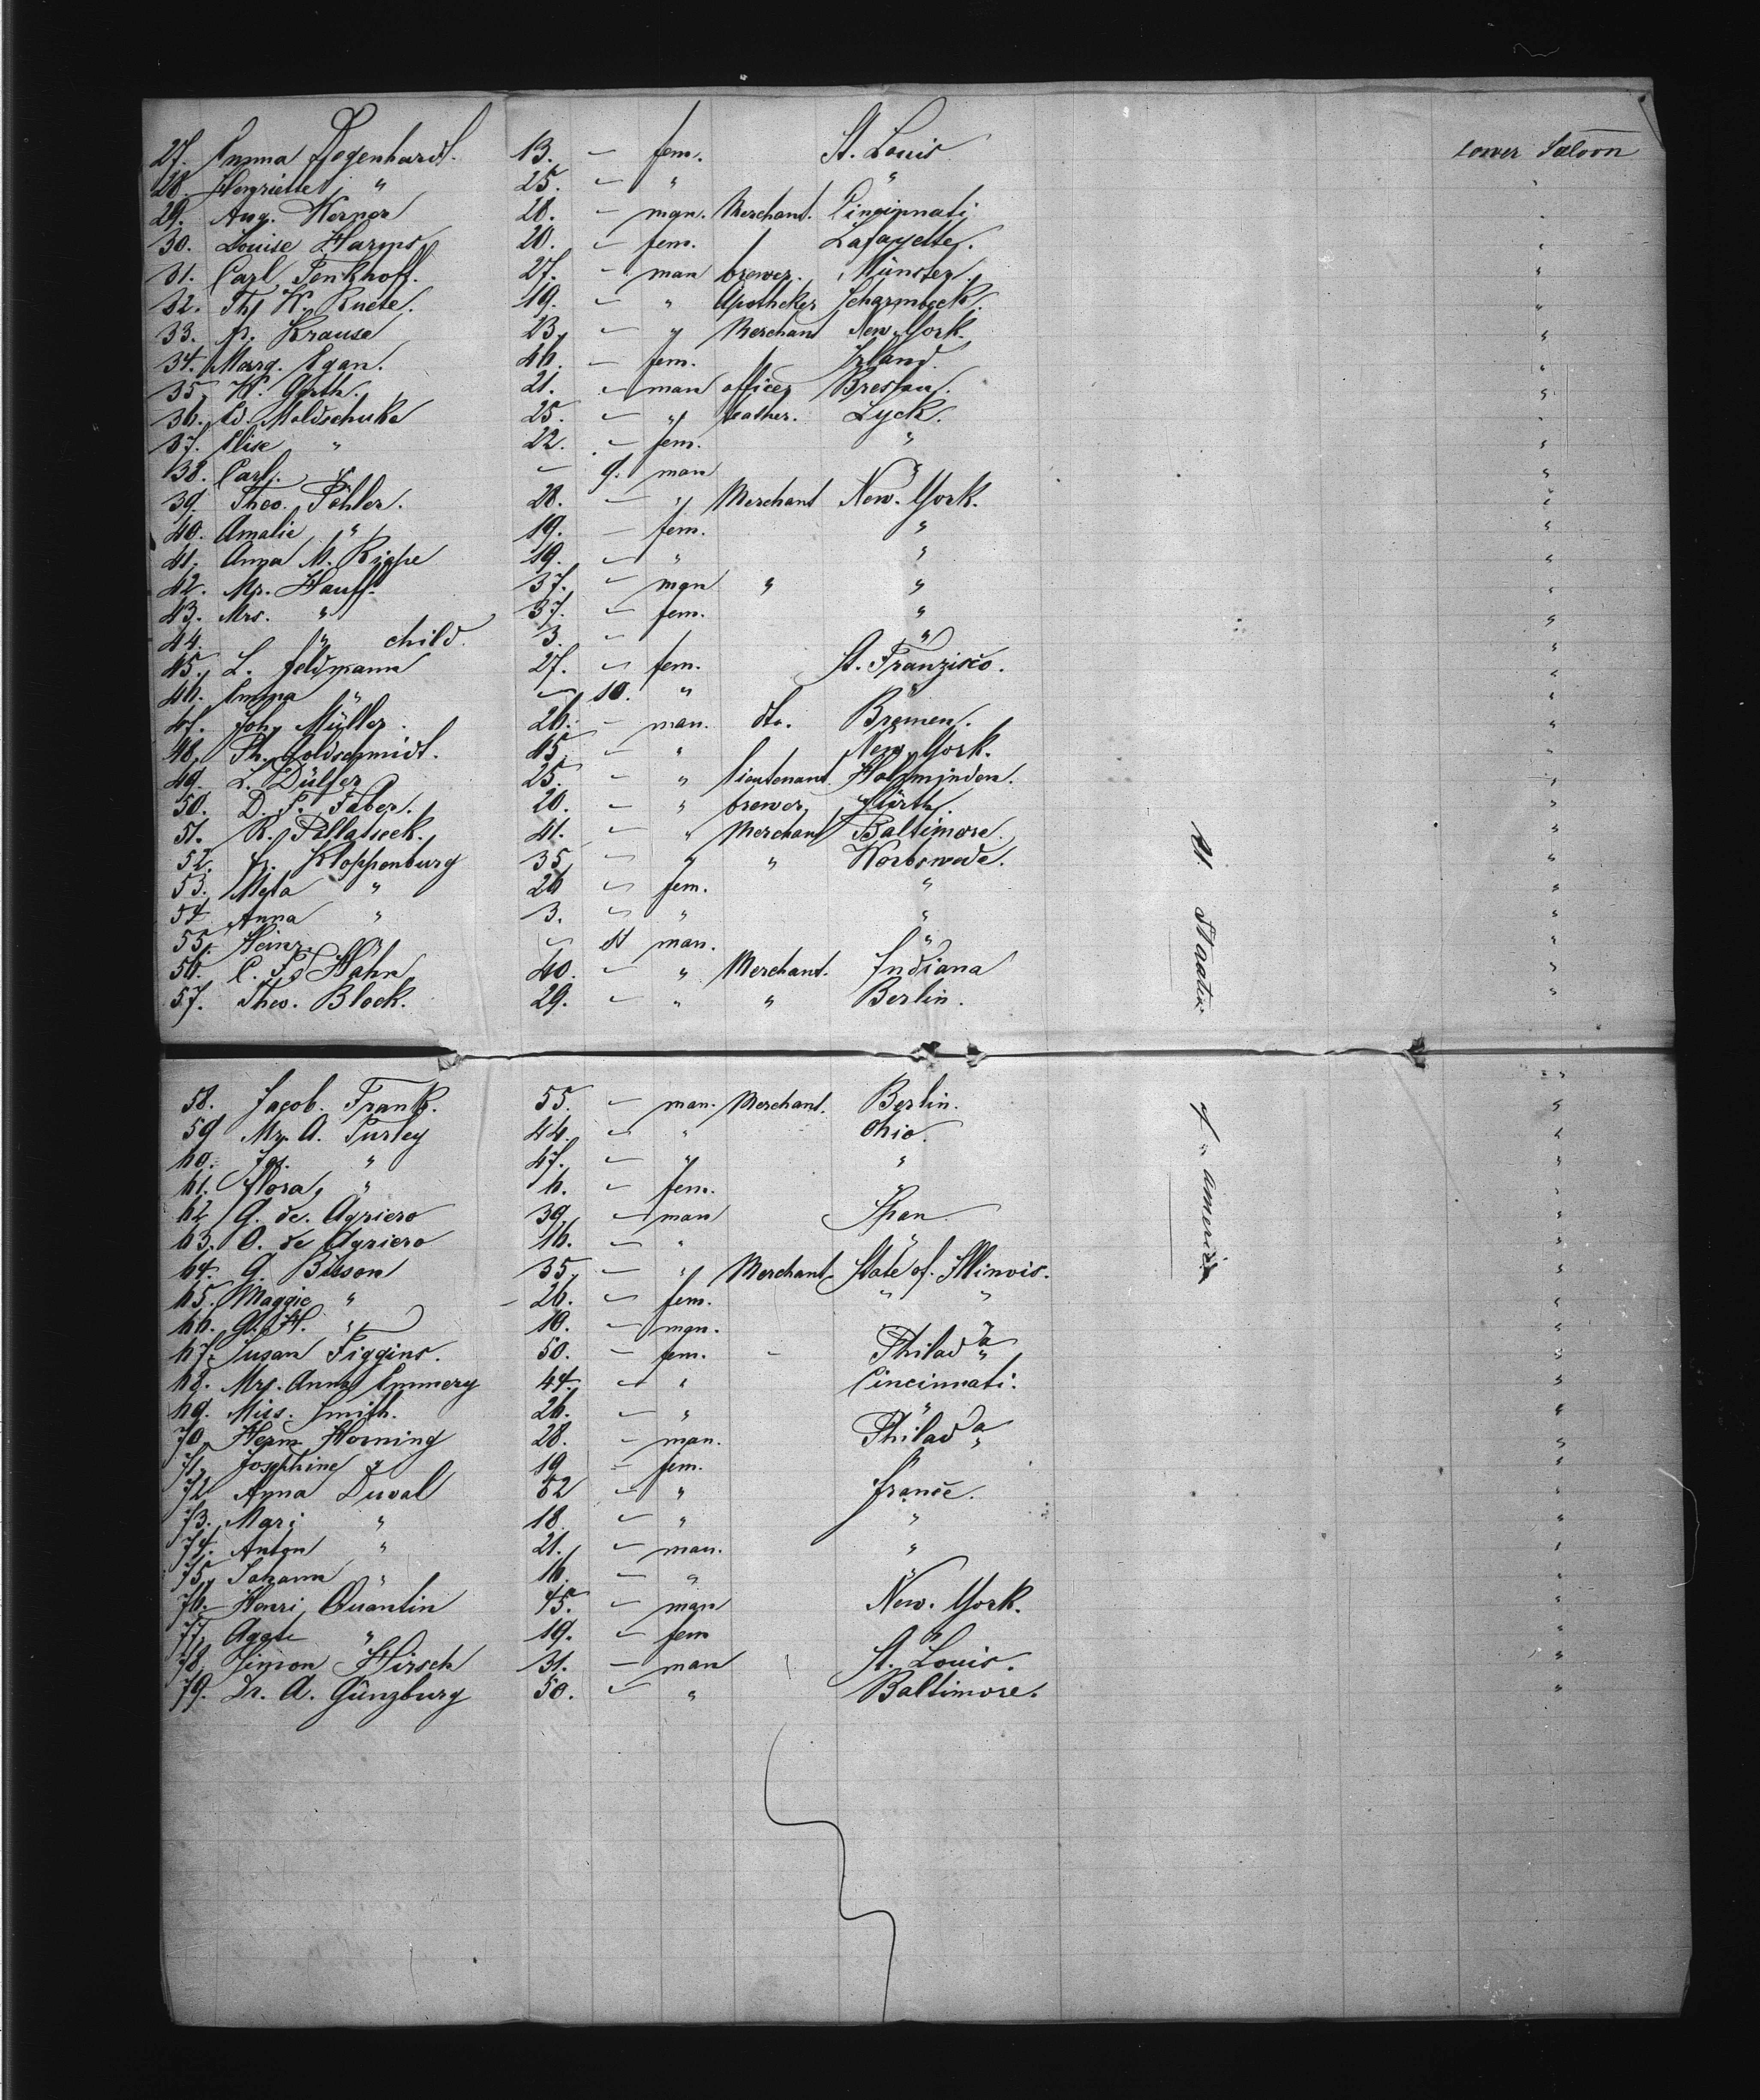 27. Emma Degenhardt. 13. — fem. St. Louis lower Saloon
28. Henriette " 25. — " " "
29. Aug. Werner 28. — man. Merchant. Cincinnati "
30. Louise Harms 20. — fem. Lafayette. "
31. Carl Tenkhoff. 27. — man brewer. Münster. "
32. Th. W. Ruete. 19. — " Apotheker Scharmbeck. "
33. Krause 23. — " Merchant New-York. "
34. Marg. Egan. 46. — fem. Irland. "
35. W. Gerth. 21. — man officer Breslau. "
36. Ed. Moldschuke 25. — " Lyck. "
37. Elise " 22. — fem. " "
38. Carl. " — 9. man " "
39. Theo. Pehler. 28. — " Merchant New-York. "
40. Amalie " 19. — fem. " "
41. Anna M. Rippe 19. — " " "
42. Mr. Hauff. 37. — man " " "
43. Mrs. " 37. — fem. " "
44. " child. 3. — " "
45. L. Feldmann 27. — fem. St. Franzisco. "
46. Emma " — 10. " " "
47. Joh. Müller. 26. — man. dto. Bremen. "
48. Ph. Goldschmidt. 45. — " New-York. "
49. L. Dülfer 25. — " lieutenant Holzminden. "
50. D. F. Faber. 20. — " brewer, Fürth. "
51. R. Pollatseck. 41. — " Merchant Baltimore. "
52. Kloppenburg 35. — " " Worbswede. "
53. Meta " 26 — fem. " "
54. Anna " 3. — " " "
55. Heinr. " — 11 man. " "
56. C. Fd Hahn 40. — " Merchant. Indiana "
57. Theo. Block. 29. — " " Berlin. "
58. Jacob. Frank. 55. — man. Merchant. Berlin. "
59 Mr. A. Turley 44. — " Ohio. "
60. " 47. — " " "
61. Flora, " 6. — fem. "
62 G. de. Agriero 39. — man Span "
63. O. de Agriero 16. — " " "
64. G. Bilson 35. — " Merchant State of. Illinois. "
65. Maggie " 26. — fem. " " "
66. G. H. " 10. — man. "
67. Susan Figgins. 50. — fem. — Philada "
68. Mrs. Anna Emmery 44. — " Cincinnati. "
69. Miss. Smith. 26. — " " "
70. Herm Horning 28. — man. Philada "
71. Josephine " 19 — fem. " "
72 Anna Duval 52 — " France. "
73. Mari " 18. — " " "
74. Anton " 21. — man. " "
75. Johann " 16. — " " "
76. Henri Quantin 45. — man New-York. "
77. Agate " 19. — fem " "
78. Simon Hirsch 31. — man St. Louis. "
79. Dr. A. Günzburg 50. — " Baltimore. "
U. Staaten
of America